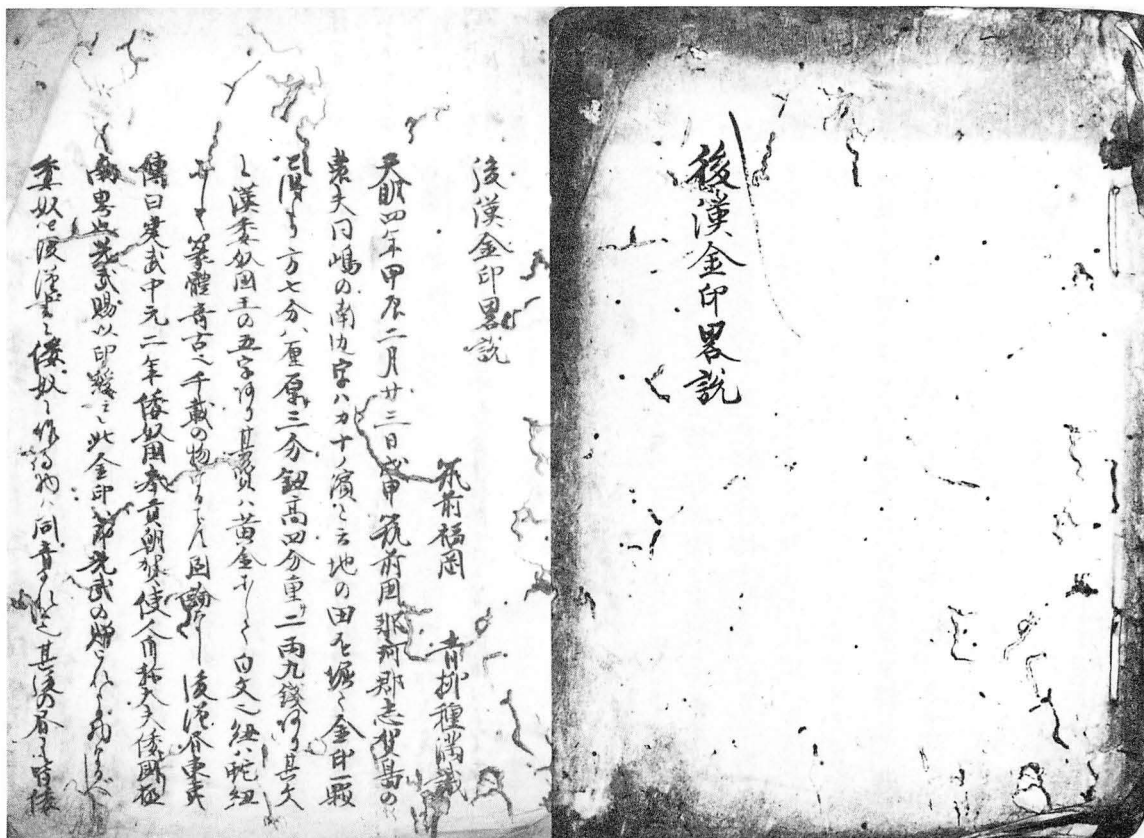 後漢金印畧説
後漢金印畧説
筑前福岡 青柳種満識
天明四年甲辰二月廿三日戊申筑前国那珂郡志賀島の
農夫同嶋の南の字ハカナノ濱と云地の田を堀て金印一顆
を得たり方七分八厘厚三分鈕高四分重二両九錢阿り其文
に漢委奴国王の五字阿り其質ハ黄金にして白文也紐ハ蛇紐
篆體奇古之千載の物 後漢書東夷
傳曰建武中元二年倭奴国奉貢朝賀使人自称大夫倭國極
南界也光武賜以印綬と此金印 光武の賜
委奴を後漢書に倭奴に作るハ同音 其後の 時倭